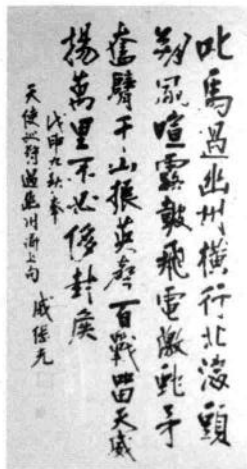 叱馬過幽州橫行北海頭
朔風喧露鼓飛電激蛇矛
奮臂千山振英聲百戰留天威
揚萬里不必侈封侯
戊申九秋奉
天使巡狩過幽州上句 戚繼光